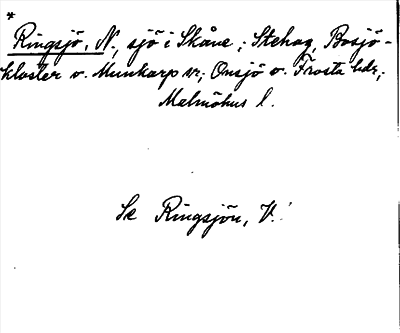 *
Ringsjö, N., sjö i Skåne; Stehag, Bosjö-
kloster o. Munkarp sr; Onsjö o. Frosta hdr;
Malmöhus l.
Se Ringsjön, V.